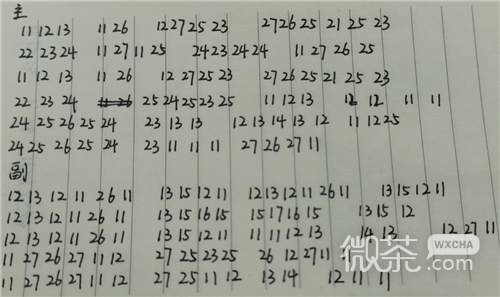 主
11 12 13 11 26 12 27 25 23 27 26 25 21 25 23
22 23 24 11 27 11 25 24 23 24 24 11 27 26 25
11 12 13 11 26 12 27 25 23 27 26 25 21 25 23
22 23 24 11 26 25 24 25 23 25 11 12 13 12 12 11 11
24 25 26 25 24 23 13 13 12 13 14 13 12 11 12 25
24 25 26 25 24 23 11 11 11 27 26 27 11
副
12 13 12 11 26 11 13 15 12 11 12 13 12 11 26 11 13 15 12 11
12 13 12 11 26 11 13 15 16 15 15 17 16 15 13 15 12
12 13 12 11 26 11 13 15 12 11 11 11 12 13 14 13 12 27 11
11 27 26 27 11 12 27 25 23 25 26 12 27 11
11 27 26 27 11 12 27 25 11 12 13 14 12 11 11
微茶
WXCHA